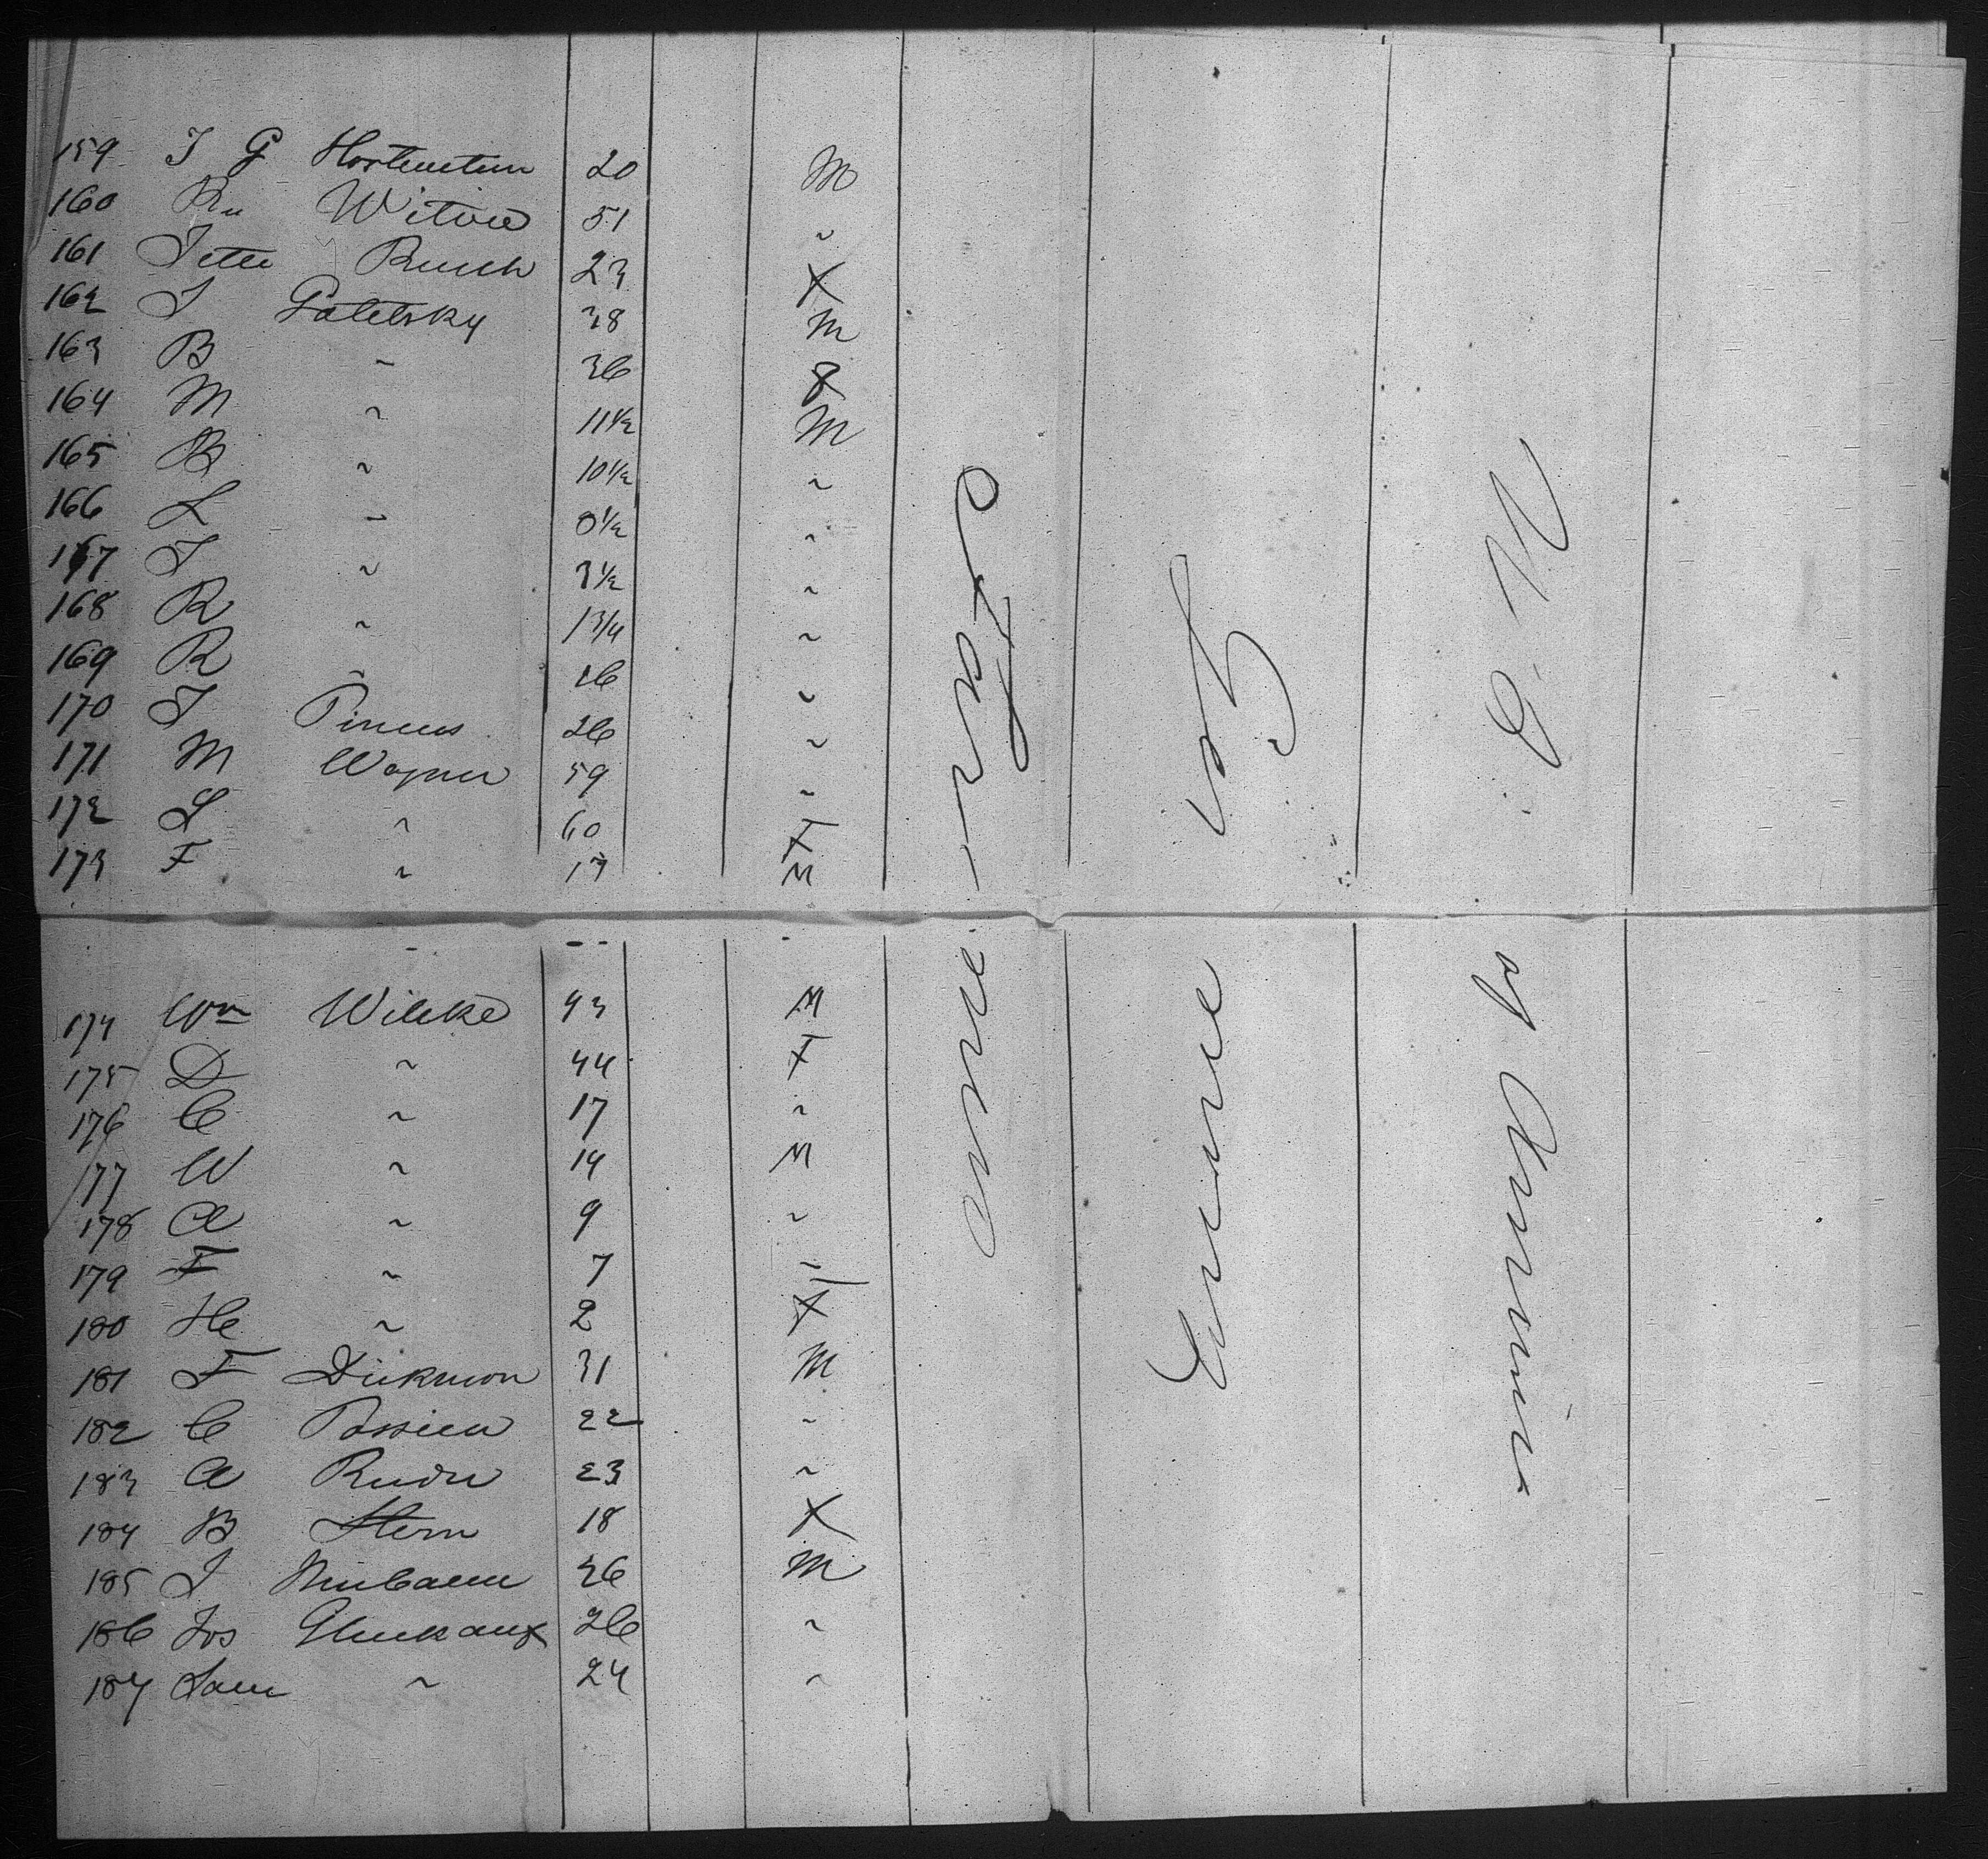 159 J G Hortenstein 20 M
160 Ru 51 ~
161 Busch 23 F
162 J Galetsky 38 M
163 B ~ 36 F
164 M ~ 11½ M
165 B ~ 10½ ~
166 L ~ 8½ ~
167 J ~ 3½ ~
168 R ~ 1¾ ~
169 R ~ 16 ~
170 J Pincus 26 ~
171 M Wagner 59 ~
172 L ~ 60 F
173 F ~ 17 M
174 Wm Wilcke 43 M
175 D ~ 44 F
176 C ~ 17 ~
177 W ~ 14 M
178 A ~ 9 ~
179 F ~ 7 ~
180 He ~ 2 F
181 F Dickmon 31 M
182 C Possien 22 ~
183 A 23 ~
184 B Stern 18 F
185 J Neubaum 26 M
186 Jos Gluckauf 26 ~
187 Sam ~ 24 ~
Germany
U. S. of America